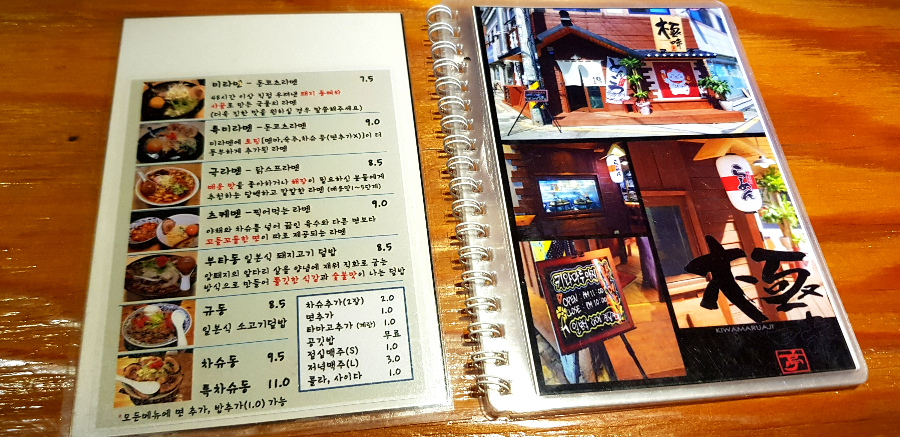 미라멘 - 돈코츠라멘 7.5
48시간 이상 직접 우려낸 돼지 통뼈와
사골로 만든 국물의 라멘
(더욱 진한 맛을 원하실 경우 말씀해주세요)
특미라멘 - 돈코츠라멘 9.0
미라멘에 토핑[멘마,숙주,차슈 등(면추가X)]이 더
풍부하게 추가된 라멘
극라멘 - 닭스프라멘 8.5
매운 맛을 좋아하거나 해장이 필요하신 분들에게
추천하는 담백하고 칼칼한 라멘 (매운맛1~5단계)
츠케멘 - 찍어먹는 라멘 9.0
야채와 차슈를 넣어 끓인 육수와 다른 면보다
꼬들꼬들한 면이 따로 제공되는 라멘
부타동 일본식 돼지고기 덮밥 8.5
암돼지의 앞다리 살을 양념에 재워 직화로 굽는
방식으로 만들어 쫄깃한 식감과 숯불맛이 나는 덮밥
규동 8.5
일본식 소고기덮밥
차슈동 9.5
특차슈동 11.0
차슈추가(2장) 2.0
면추가 1.0
타마고추가(계란) 1.0
공깃밥 무료
점심맥주(S) 1.0
저녁맥주(L) 3.0
콜라, 사이다 1.0
*모든메뉴에 면 추가, 밥추가(1.0) 가능
極味
らーめん
極
KIWAMARUAJI
OPEN AM 11:00
CLOSE PM 10:00